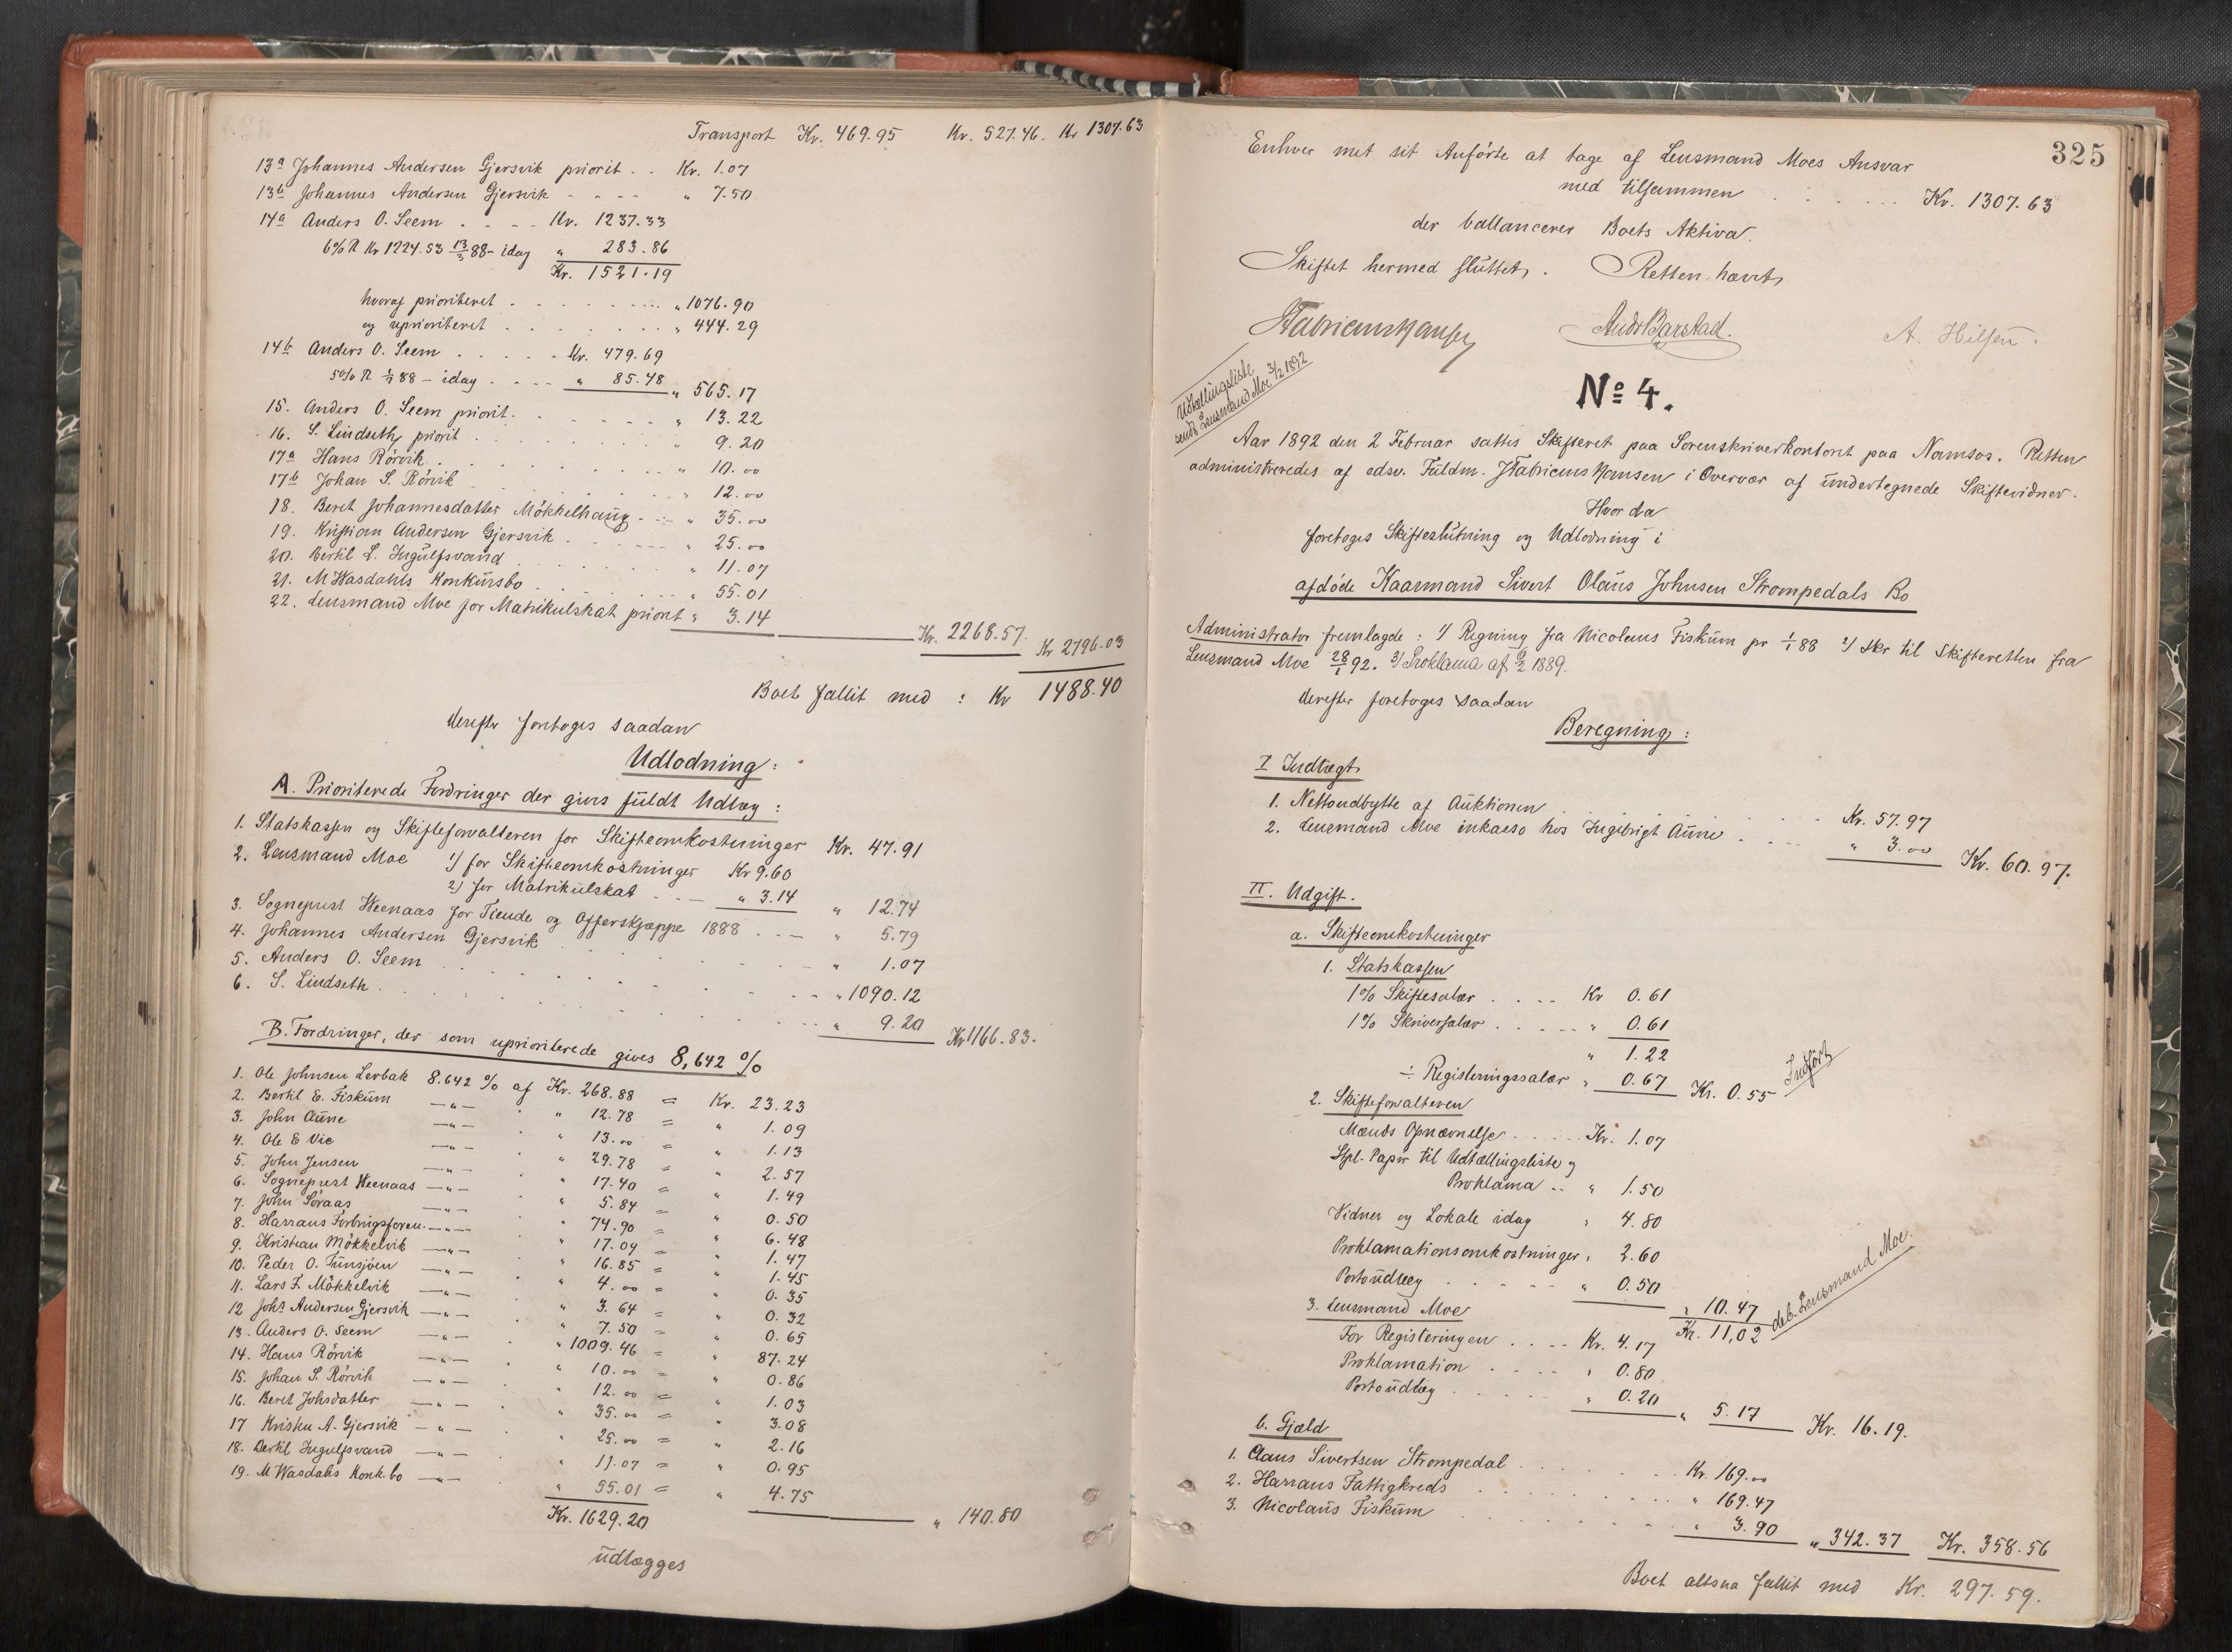 Transport Kr. 469.95 Kr. 527.46. Kr 1307.63
13a Johannes Andersen Gjersvik priorit . . Kr. 1.07
13b Johannes Andersen Gjersvik - - - - " 7.50
14a Anders O. Seem . - - - Kr. 1237.33
6% R Kr 1224.53 13/3 88 - idag " 283.86
Kr. 1521.19
hvoraf prioriteret . . . . . . . . " 1076.90
og uprioriteret . . . . . . . " 444.29
14b Anders O. Seem . . . . . Kr. 479.69
5% R 1/7 88 - idag . . . . " 85.48 " 565.17
15. Anders O. Seem priorit. . . . . . . " 13.22
16. S. Lindseth priorit . . . . . . . . " 9.20
17a Hans Rörvik . . . . . . . . . " 10.00
17b Johan S. Rörvik . . . . . . . . " 12.00
18. Beret Johannesdatter Mökkelhaug . - - " 35.00
19. Kristian Andersen Gjersvik . . . . . " 25.00
20. Bertil L. Ingulfsvand . . . . . . " 11.07
21. M Wasdahls Konkursbo . . . . . . " 55.01
22. Lensmand Moe for Matrikulskat priorit " 3.14 Kr. 2268.57. Kr 2796.03
Boet fallit med : Kr 1488.40
derefter foretoges saadan
Udlodning :
A. Prioriterede Fordringer der gives fuldt Udlæg :
1. Statskassen og Skifteforvalteren for Skifteomkostninger Kr. 47.91
2. Lensmand Moe 1) for Skifteomkostninger Kr 9.60
2) for Matrikulskat . . - " 3.14 " 12.74
3. Sogneprest Heenaas for Tiende og Offerskjæppe 1888 . . - " 5.79
4. Johannes Andersen Gjersvik . . . . . . " 1.07
5. Anders O. Seem . . . . . . . . " 1090.12
6. S. Lindseth . . . . . . . . . " 9.20 Kr 1166.83.
B. Fordringer, der som uprioriterede gives 8,642 %
1. Ole Johnsen Lerbak 8.642 % af Kr. 268.88 = Kr. 23.23
2. Bertil E. Fiskum —"— " 12.78 = " 1.09
3. John Aune —"— " 13.00 = " 1.13
4. Ole E Vie —"— " 29.78 = " 2.57
5. John Jensen —"— " 17.40 = " 1.49
6. Sogneprest Heenaas —"— " 5.84 = " 0.50
7. John Soraas —"— " 74.90 = " 6.48
8. Harrans Forbrugsforen. —"— " 17.09 = " 1.47
9. Kristian Mökkelvik —"— " 16.85 = " 1.45
10. Peder O. Tunsjöen —"— " 4.00 = " 0.35
11. Lars F. Mökkelvik —"— " 3.64 = " 0.32
12 Johs Andersen Gjersvik —"— " 7.50 = " 0.65
13. Anders O. Seem —"— " 1009.46 = " 87.24
14. Hans Rörvik —"— " 10.00 = " 0.86
15. Johan S. Rörvik —"— " 12.00 = " 1.03
16. Beret Johsdatter —"— " 35.00 = " 3.08
17 Kristen A. Gjersvik —"— " 25.00 = " 2.16
18. Bertil Ingulfsvand —"— " 11.07 = " 0.95
19. M Wasdahls Konk.bo —"— " 55.01 = " 4.75
Kr. 1629.20 " 140.80
udlægges
325
Enhver met sit Anførte at tage af Lensmand Moes Ansvar
med tilsammen . . . . . . Kr. 1307.63
der ballancerer Boets Aktiva.
Skiftet hermed sluttet. Retten hævet,
JFabriciusHansen Andr Barstad. A. Hilsen.
Udtællingsliste
sendt Lensmand Moe 3/2 1892
No 4.
Aar 1892 den 2 Februar sattes Skifteret paa Sorenskriverkontoret paa Namsos. Retten
administreredes af edsv. Fuldm. JFabricius Hansen i Overvær af undertegnede Skiftevidner.
Hvor da
foretoges Skifteslutning og Udlodning i
afdøde Kaarmand Sivert Olaus Johnsen Strompedals Bo
Administrator fremlagde : 1) Regning fra Nicolaus Fiskum pr 1/1 88 2) Skr til Skifteretten fra
Lensmand Moe 28/1 92. 3) Proklama af 9/2 1889.
derefter foretoges saadan
Beregning :
I Indtægt
1. Nettoudbytte af Auktionen . . . . . . . Kr. 57.97
2. Lensmand Moe inkasso hos Ingebrigt Aune . . . . " 3.00 Kr. 60.97.
II. Udgift.
a. Skifteomkostninger
1. Statskassen
1% Skiftesalær . . . . Kr 0.61
1% Skriversalær . . . . . " 0.61
" 1.22
÷ Registeringssalær " 0.67 Kr. 0.55 Indført
2. Skifteforvalteren
Mænds Opnævnelse . . . . Kr. 1.07
Stpl. Papir til Udtællingsliste og
Proklama . . " 1.50
Vidner og Lokale idag " 4.80
Proklamationsomkostninger " 2.60
Portoudlæg . . . . . " 0.50 " 10.47
Kr. 11,02 deb. Lensmand Moe.
3. Lensmand Moe
For Registeringen . . . . Kr. 4.17
Proklamation . . . . " 0.80
Portoudlæg . . . . . " 0.20 " 5.17 Kr. 16.19.
b. Gjæld
1. Claus Sivertsen Strompedal . . . . . . Kr. 169.00
2. Harrans Fattigkreds . . . . . . . " 169.47
3. Nicolaus Fiskum . . . . . . . . " 3.90 " 342.37 Kr. 358.56
Boet altsaa fallit med Kr. 297.59.